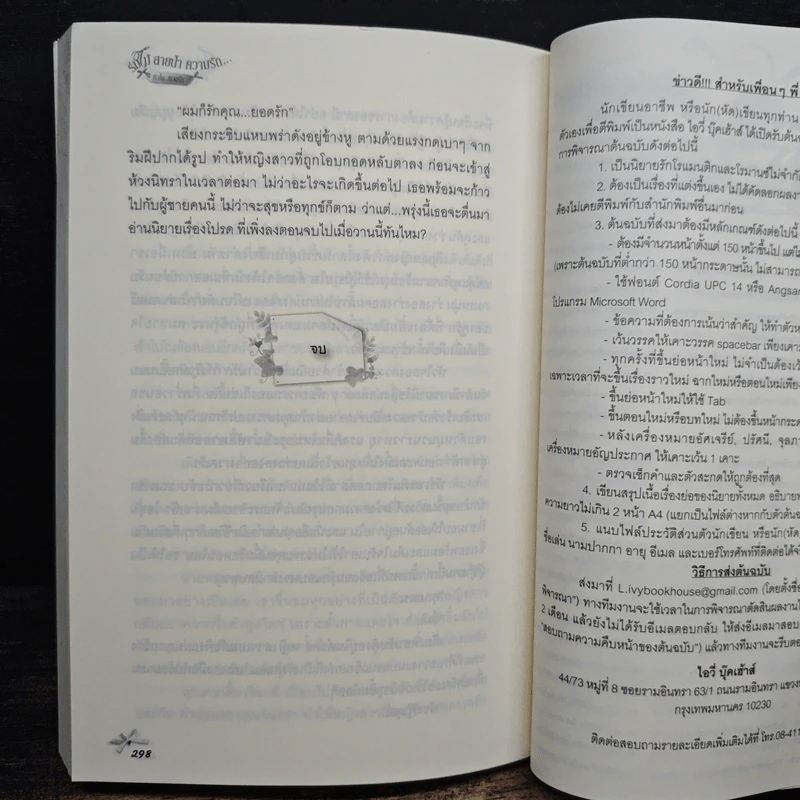 สายป่า ความรัก...
"ผมก็รักคุณ...ยอดรัก"
เสียงกระซิบแหบพร่าดังอยู่ข้างหู ตามด้วยแรงกดเบาๆ จาก
ริมฝีปากได้รูป ทำให้หญิงสาวที่ถูกโอบกอดหลับตาลง ก่อนจะเข้าสู่
ห้วงนิทราในเวลาต่อมา ไม่ว่าอะไรจะเกิดขึ้นต่อไป เธอพร้อมจะก้าว
ไปกับผู้ชายคนนี้ ไม่ว่าจะสุขหรือทุกข์ก็ตาม ว่าแต่...พรุ่งนี้เธอจะตื่นมา
อ่านนิยายเรื่องโปรด ที่เพิ่งลงตอนจบไปเมื่อวานนี้ทันไหม?
จบ
298
ข่าวดี!!! สำหรับเพื่อนๆ พี่
นักเขียนอาชีพ หรือนัก(หัด)เขียนทุกท่าน
ตัวเองเพื่อตีพิมพ์เป็นหนังสือ ไอวี่ บุ๊คเฮ้าส์ ได้เปิดรับต้น
การพิจารณาต้นฉบับดังต่อไปนี้
1. เป็นนิยายรักโรแมนติกและโรมานซ์ไม่จำกั
2. ต้องเป็นเรื่องที่แต่งขึ้นเอง ไม่ได้คัดลอกผลงา
ต้องไม่เคยตีพิมพ์กับสำนักพิมพ์อื่นมาก่อน
3. ต้นฉบับที่ส่งมาต้องมีหลักเกณฑ์ดังต่อไปนี้
- ต้องมีจำนวนหน้าตั้งแต่ 150 หน้าขึ้นไป แต่ไม่
(เพราะต้นฉบับที่ต่ำกว่า 150 หน้ากระดาษนั้น ไม่สามารถ
- ใช้ฟอนต์ Cordia UPC 14 หรือ Angsan
โปรแกรม Microsoft Word
- ข้อความที่ต้องการเน้นว่าสำคัญ ให้ทำตัวห
- เว้นวรรคให้เคาะวรรค spacebar เพียงเคาะ
- ทุกครั้งที่ขึ้นย่อหน้าใหม่ ไม่จำเป็นต้องเว้
เฉพาะเวลาที่จะขึ้นเรื่องราวใหม่ ฉากใหม่หรือตอนใหม่เพีย
- ขึ้นย่อหน้าใหม่ให้ใช้ Tab
- ขึ้นตอนใหม่หรือบทใหม่ ไม่ต้องขึ้นหน้ากระด
- หลังเครื่องหมายอัศเจรีย์, ปรัศนี, จุลภา
เครื่องหมายอัญประกาศ ให้เคาะเว้น 1 เคาะ
- ตรวจเช็กคำและตัวสะกดให้ถูกต้องที่สุด
4. เขียนสรุปเนื้อเรื่องย่อของนิยายทั้งหมด อธิบาย
ความยาวไม่เกิน 2 หน้า A4 (แยกเป็นไฟล์ต่างหากกับตัวต้น
5. แนบไฟล์ประวัติส่วนตัวนักเขียน หรือนัก(หัด)
ชื่อเล่น นามปากกา อายุ อีเมล และเบอร์โทรศัพท์ที่ติดต่อได้
วิธีการส่งต้นฉบับ
ส่งมาที่ L.ivybookhouse@gmail.com (โดยตั้งชื่อ
พิจารณา") ทางทีมงานจะใช้เวลาในการพิจารณาตัดสินผลงาน
2 เดือน แล้วยังไม่ได้รับอีเมลตอบกลับ ให้ส่งอีเมลมาสอบ
"สอบถามความคืบหน้าของต้นฉบับ") แล้วทางทีมงานจะรีบตอบ
ไอวี่ บุ๊คเฮ้าส์
44/73 หมู่ที่ 8 ซอยรามอินทรา 63/1 ถนนรามอินทรา แขวง
กรุงเทพมหานคร 10230
ติดต่อสอบถามรายละเอียดเพิ่มเติมได้ที่ โทร.08-411